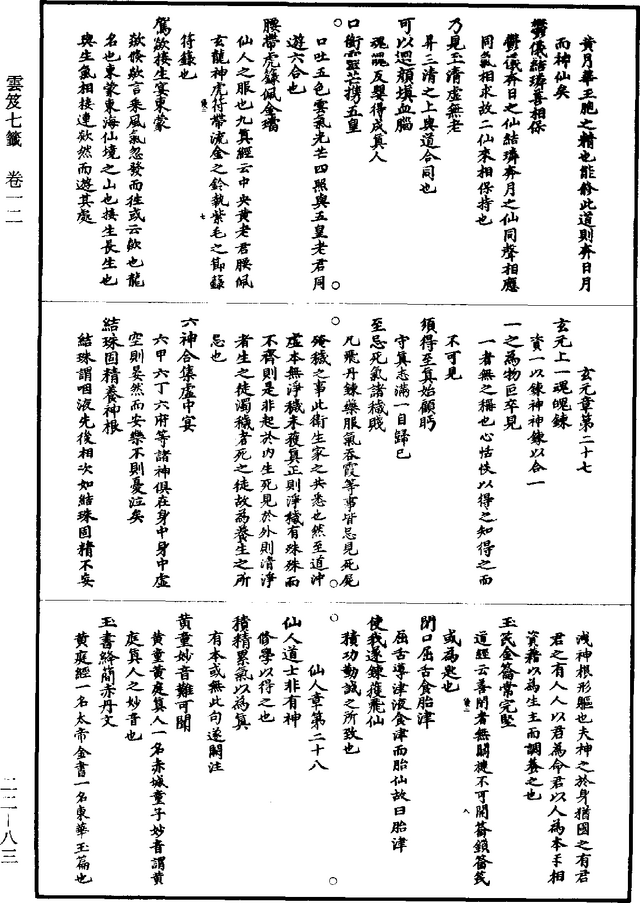 雲笈七籤 卷一二
黄月華玉胞之精也能修此道則奔日月
而神仙矣
鬱儀結璘善相保
鬱儀奔日之仙結璘奔月之仙同聲相應
同氣相求故二仙來相保持也
乃見玉清虛無老
昇三清之上與道合同也
可以迴顏填血腦
魂魄反嬰得成真人
口銜靈芒携五皇
口吐五色雲氣光芒四照與五皇老君同
遊六合也
腰帶虎籙佩金璫
仙人之服也九真經云中央黄老君腰佩
玄龍神虎符帶流金之鈴執紫毛之節籙
符籙也
駕欻接生宴東蒙
欻倏欻言乘風氣忽發而往或云欻也龍
名也東蒙東海仙境之山也接生長生也
與生氣相接連欻然而遊其處
玄元章第二十七
玄元上一魂魄鍊
資一以鍊神神鍊以合一
一之為物叵卒見
一者無之稱也心恬惔以得之知得之而
不可見
須得至真始顧眄
守真志滿一自歸已
至忌死氣諸穢賤
凡飛丹鍊藥服氣吞霞等事皆忌見死屍
殗穢之事此衛生家之共悉也然至道沖
虛本無淨穢未獲真正則淨穢有殊殊而
不齊則是非起於内生死見於外則清淨
者生之徒濁穢者死之徒故為養生之所
忌也
六神合集虛中宴
六甲六丁六府等諸神俱在身中身中虛
空則宴然而安樂不則憂泣矣
結珠固精養神根
結珠謂咽液先後相次如結珠固精不妄
洩神根形軀也夫神之於身猶國之有君
君之有人人以君為命君以人為本手相
資藉以為生主而調養之也
玉笢金籥常完堅
道經云善閉者無關揵不可開籥鎖籥笢
或為匙也
閉口屈舌食胎津
屈舌導津液食津而胎仙故曰胎津
使我遂鍊獲飛仙
積功勤誠之所致也
仙人章第二十八
仙人道士非有神
修學以得之也
積精累氣以為真
有本或無此句遂闕注
黄童妙音難可聞
黄童黄庭真人一名赤城童子妙音謂黄
庭真人之妙音也
玉書絳簡赤丹文
黄庭經一名太帝金書一名東華玉篇也
二二－八三